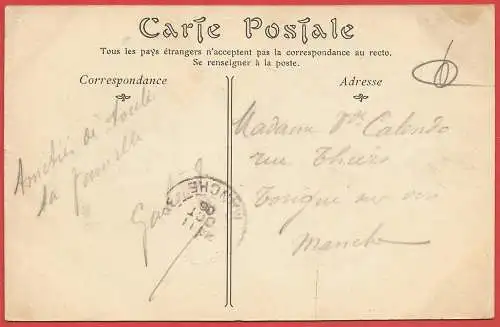 Carte Postale
Tous les pays étrangers n'acceptent pas la correspondance au recto.
Se renseigner à la poste.
Correspondance
Adresse
Amitiés de toute
la famille
Madame Vve Calenda
rue Thiers
Torigni sur vire
Manche
MANCHE
OCT